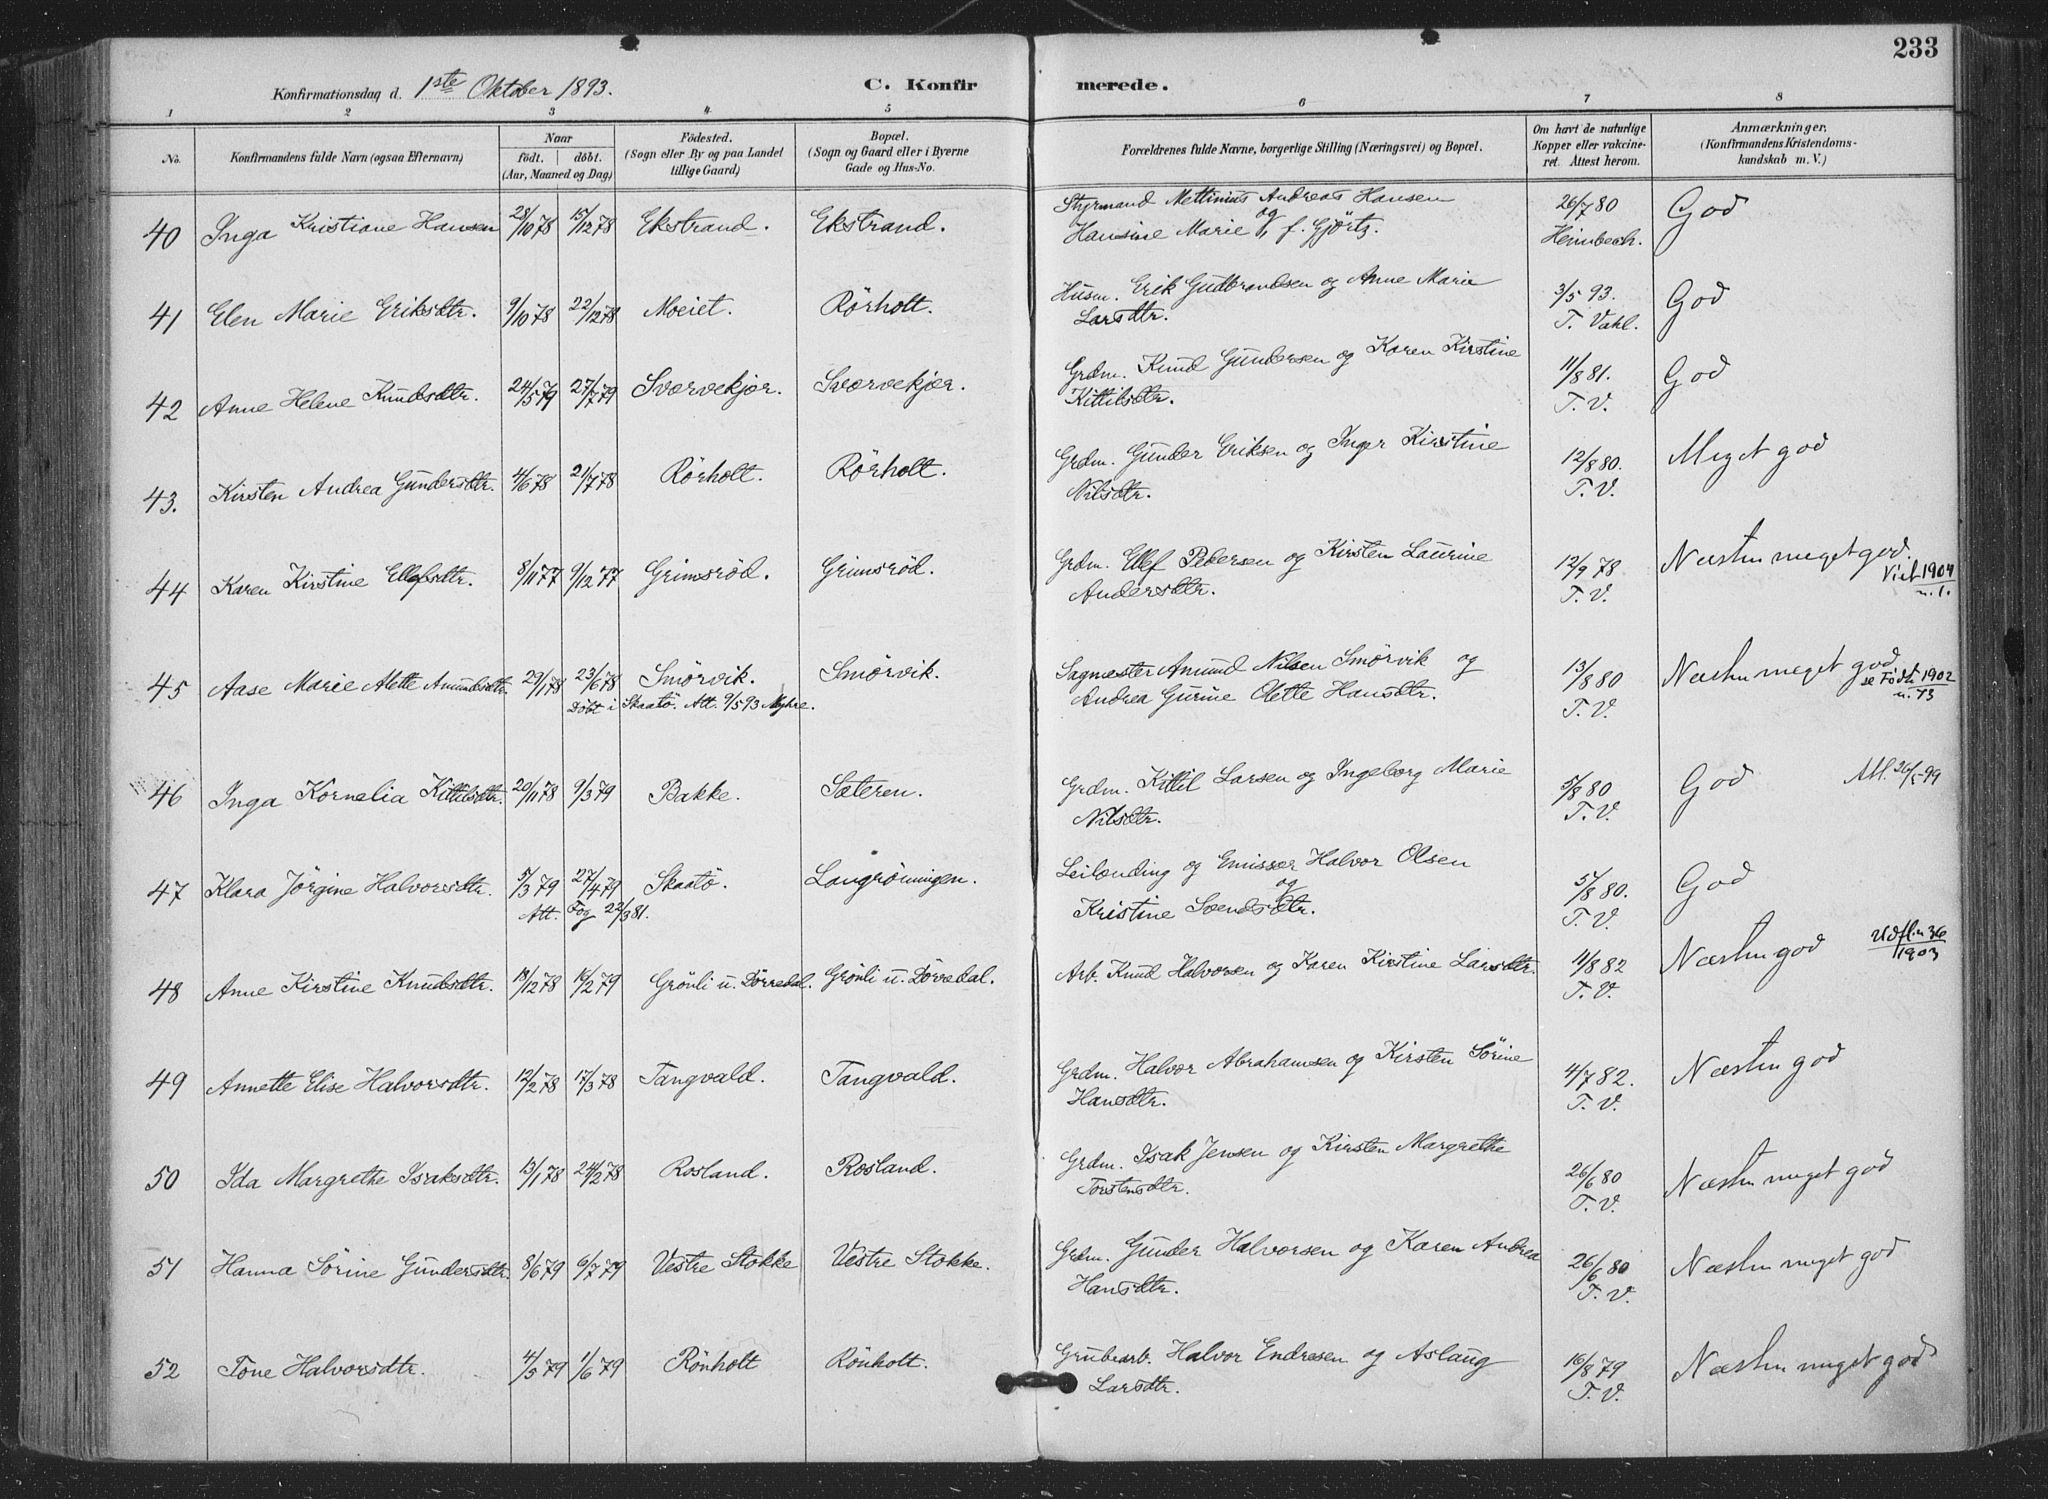 233
Konfirmationsdag d. 1ste Oktober 1893.
C. Konfirmerede.
1 2 3 4 5 6 7 8
No. Konfirmandens fulde Navn (ogsaa Efternavn) Naar födt. döbt. (Aar, Maaned og Dag) Födested. (Sogn eller By og paa Landet tillige Gaard) Bopæl. (Sogn og Gaard eller i Byerne Gade og Hus-No. Forældrenes fulde Navne, borgerlige Stilling (Næringsvei) og Bopæl. Om havt de naturlige Kopper eller vakcineret. Attest herom. Anmærkninger. (Konfirmandens Kristendomskundskab m. V.)
40 Inga Kristiane Hansen 28/10 78 15/12 78 Ekstrand. Ekstrand. Styrmand Mettinius Andreas Hansen og 26/7 80 God
Hansine Marie f. Gjörtz. Heimbech.
41 Elen Marie Eriksdtr. 9/10 78 22/12 78 Moeiet. Rörholt. Husm. Erik Gudbrandsen og Anne Marie 3/5 93. God
Larsdtr. T. Vahl.
42 Anne Helene Knudsdtr. 24/5 79 27/7 79 Sværvekjær. Sværvekjær. Grdm. Knud Gundersen og Karen Kirstine 11/8 81. God
Kittilsdtr. T. V.
43. Kirsten Andrea Gundersdtr. 4/6 78 21/7 78 Rörholt. Rörholt. Grdm. Gunder Eriksen og Inger Kirstine 12/8 80. Meget god
Nilsdtr. T. V.
44 Karen Kirstine Ellefsdtr. 8/11 77 9/12 77 Grimsröd. Grimsröd. Grdm. Ellef Pedersen og Kirsten Laurine 12/9 78 Næsten meget god. Viet 1904
Andersdtr. T. V. n. 1.
45 Aase Marie Alette Amundsdtr. 29/1 78 23/6 78 Smörvik. Smörvik. Sagmester Amund Nilsen Smörvik og 13/8 80 Næsten meget god se Födt 1902
Döbt i Skaatö. Att. 9/5 93 Myhre. Andrea Gurine Olette Hansdtr. T. V. n. 13
46 Inga Kornelia Kittilsdtr. 20/11 78 9/3 79 Bakke. Sæteren. Grdm. Kittil Larsen og Ingeborg Marie 5/8 80 God Att. 26/5 99
Nilsdtr. T. V.
47 Klara Jörgine Halvorsdtr. 5/3 79 27/4 79 Skaatö. Langrönningen. Leilænding og Emissær Halvor Olsen og 5/8 80. God
Att. Fog 22/3 81. Kristine Svendsdtr. T. V.
48 Anne Kirstine Knudsdtr. 19/12 78 16/2 79 Grönli u. Dörredal. Grönli u. Dörredal. Arb. Knud Halvorsen og Karen Kirstine Larsdtr. 11/8 82 Næsten god Udfl. n 36
T. V. 1903
49 Annette Elise Halvorsdtr. 12/2 78 17/3 78 Tangvald. Tangvald. Grdm. Halvor Abrahamsen og Kirsten Sörine 4/7 82. Næsten god
Hansdtr. T. V.
50 Ida Margrethe Isaksdtr. 13/1 78 24/2 78 Rosland. Rosland. Grdm. Isak Jensen og Kirsten Margrethe 26/6 80 Næsten meget god
Torstensdtr. T. V.
51 Hanna Sörine Gundersdtr. 8/6 79 6/7 79 Vestre Stokke Vestre Stokke. Grdm. Gunder Halvorsen og Karen Andrea 26/6 80 Næsten meget god
Hansdtr. T. V.
52 Tone Halvorsdtr. 4/5 79 1/6 79 Rönholt Rönholt. Grubearb. Halvor Endresen og Aslaug 16/8 79 Næsten meget god
Larsdtr. T. V.